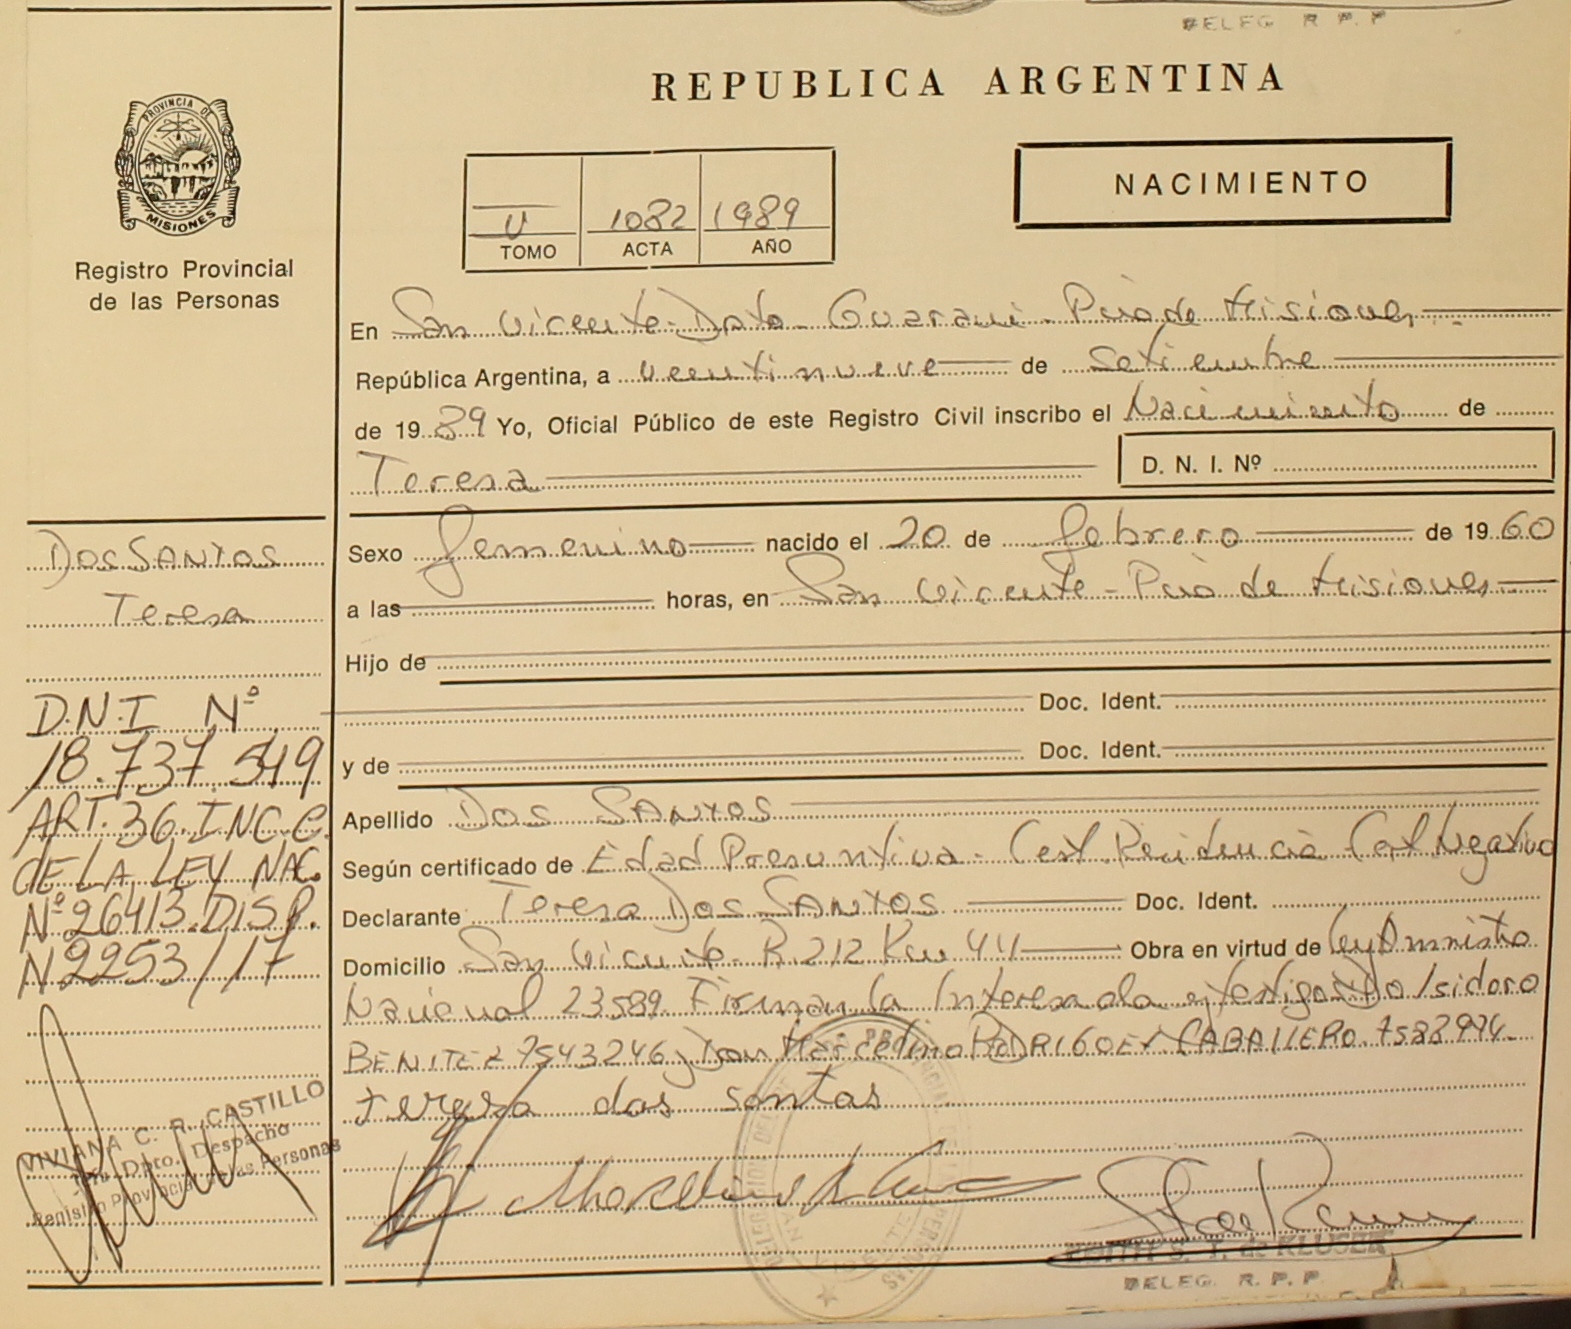 DELEG R P P
REPUBLICA ARGENTINA
PROVINCIA DE
MISIONES
Registro Provincial
de las Personas
U 1082 1989
TOMO ACTA AÑO
NACIMIENTO
En San Vicente - Dpto. Guaraní - Pcia de Misiones
República Argentina, a veentinueve de setiembre
de 1989 Yo, Oficial Público de este Registro Civil inscribo el Nacimiento de
Teresa
D. N. I. Nº
Sexo femenino nacido el 20 de febrero de 1960
a las horas, en San Vicente - Pcia de Misiones
Hijo de
Doc. Ident.
y de Doc. Ident.
Apellido DOS SANTOS
Según certificado de Edad Presuntiva - Cert. Residencia Cert Negativo
Declarante Teresa DOS SANTOS Doc. Ident.
Domicilio San Vicente - R. 212 Km 44 Obra en virtud de Ley Amnistia
Nacional 23589. Firman la Interesada y testigos Isidoro
BENITEZ 7543246 y Don Marcelino RODRIGUEZ CABALLERO. 7588974
teresa dos santas
EDITH S. T. de KLUSER
DELEG. R. P. P.
DOS SANTOS
Teresa
D.N.I Nº
18.737.549
ART. 36. INC C.
DE LA LEY NAC.
Nº 26413. DISP.
Nº 2253/17
VIVIANA C. R. CASTILLO
Jefe Dpto. Despacho
Provincial de las Personas